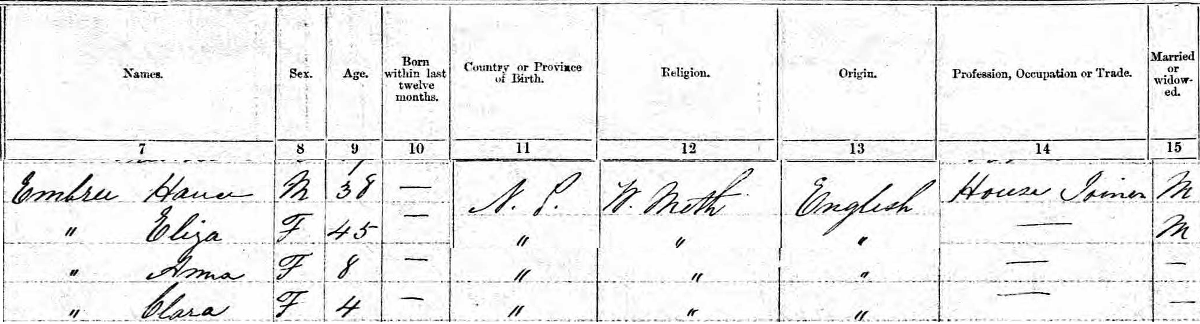 Names. Sex. Age. Born within last twelve months. Country or Province of Birth. Religion. Origin. Profession, Occupation or Trade. Married or widow-ed.
7 8 9 10 11 12 13 14 15
Embree M 38 — N. S. W. Meth English House Joiner M
" Eliza F 45 — " " " — M
" Anna F 8 — " " " — —
" Clara F 4 — " " " — —